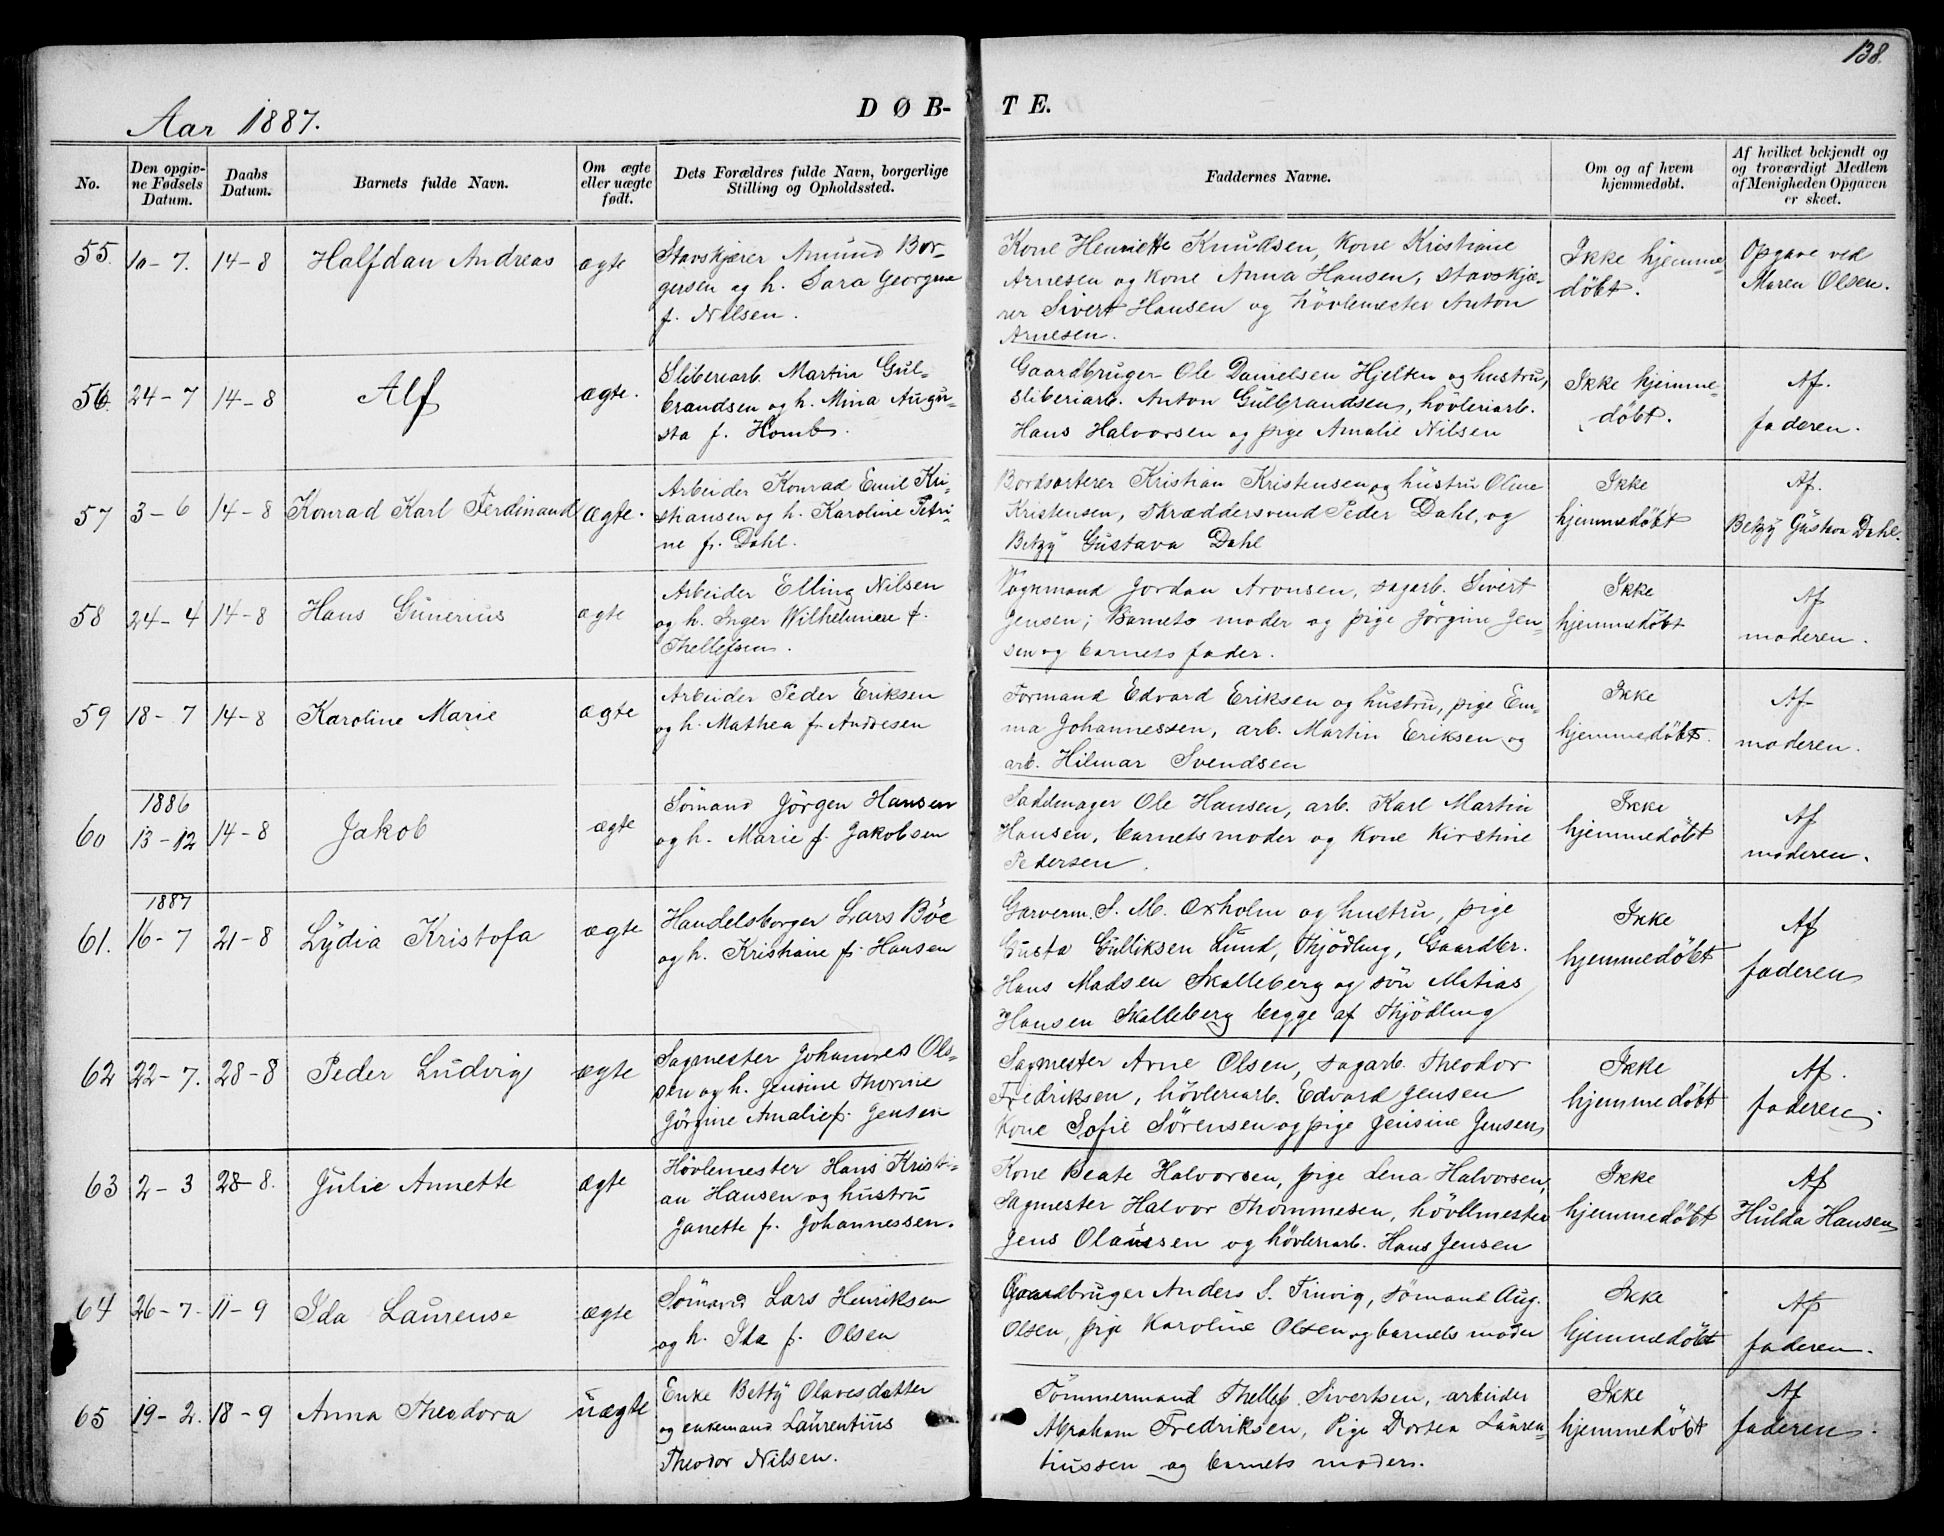 138.
Aar 1887.
DØB-
TE.
No.
Den opgiv-
ne Fødsels
Datum.
Daabs
Datum.
Barnets fulde Navn.
Om ægte
eller uægte
født.
Dets Forældres fulde Navn, borgerlige
Stilling og Opholdssted.
Faddernes Navne.
Om og af hvem
hjemmedøbt.
Af hvilket bekjendt og
og troværdigt Medlem
af Menigheden Opgaven
er skeet.
55. 10-7. 14-8 Halfdan Andreas ægte
Stavskjærer Amund Bor-
gersen og h. Sara Georgine
f. Nilsen.
Kone Henriette Knudsen, Kone Kristiane
Arnesen og Kone Anna Hansen, stavskjæ-
rer Sivert Hansen og høvlemester Anton
Arnesen.
Ikke hjemme-
døbt.
Opgave ved
Maren Olsen.
56. 24-7 14-8 Alf ægte.
Sliberiarb. Martin Gul-
brandsen og h. Mina Augu-
sta f. Homb.
Gaardbruger Ole Danielsen Hjelken og hustru,
sliberiarb. Anton Gulbrandsen, høvleriarb.
Hans Halvorsen og pige Amalie Nilsen
Ikke hjemme-
døbt.
Af.
faderen.
57 3-6 14-8 Konrad Karl Ferdinand ægte.
Arbeider Konrad Emil Kri-
stiansen og h. Karoline Petri-
ne f. Dahl.
Bordsorterer Kristian Kristensen og hustru Oline
Kristensen, Skræddersvend Peder Dahl, og
Betzy Gustava Dahl
Ikke
hjemmedøbt
Af.
Betzy Gustava Dahl.
58 24-4 14-8 Hans Gunerius ægte
Arbeider Elling Nilsen
og h. Inger Wilhelmine f.
Thellefsen.
Vognmand Jordan Aronsen, sagarb. Sivert
Jensen; Barnets moder og pige Jørgine Jen-
sen og barnets fader.
Ikke
hjemmedøbt
Af
moderen.
59 18-7 14-8 Karoline Marie ægte
Arbeider Peder Eriksen
og h. Mathea f. Andresen
Formand Edvard Eriksen og hustru, pige Em-
ma Johannessen, arb. Martin Eriksen og
arb. Hilmar Svendsen
Ikke
hjemmedøbt.
Af
moderen.
1886
60 13-12 14-8 Jakob ægte
Sømand Jørgen Hansen
og h. Marie f. Jakobsen
Sadelmager Ole Hansen, arb. Karl Martin
Hansen, barnets moder og Kone Kirstine
Pedersen.
Ikke
hjemmedøbt
Af
moderen.
1887
61. 16-7 21-8 Lydia Kristofa ægte
Handelsborger Lars Bøe
og h. Kristiane f. Hansen
Garverm. S. M. Oxholm og hustru, pige
Gusta Gulliksen Lund, Thjødling, Gaardbr.
Hans Madsen Skalleberg og søn Matias
Hansen Skalleberg begge af Thjødling
Ikke
hjemmedøbt
Af
faderen
62 22-7. 28-8 Peder Ludvig ægte
Sagmester Johannes Ols-
sen og h. Jensine Thorine
Jørgine Amalie f. Jensen
Sagmester Arne Olsen, sagarb. Theodor
Fredriksen, høvleriarb. Edvard Jensen
Kone Sofie Sørensen og pige Jensine Jensen
Ikke
hjemmedøbt
Af.
faderen.
63 2-3 28-8. Julie Annette ægte
Høvlemester Hans Kristi-
an Hansen og hustru
Janette f. Johannessen.
Kone Beate Halvorsen, pige Lena Halvorsen,
Sagmester Halvor Thommesen, høvlmester
Jens Olaussen og høvleriarb. Hans Jensen
Ikke
hjemmedøbt
Af
Hulda Hansen
64 26-7. 11-9 Ida Laurense ægte
Sømand Lars Henriksen
og h. Ida f. Olsen
Gaardbruger Anders S. Trivig, sømand Aug.
Olsen, pige Karoline Olsen og barnets moder
Ikke
hjemmedøbt
Af
faderen.
65 19-2. 18-9 Anna Theodora uægte
Enke Betty Olavesdatter
og enkemand Laurentius
Theodor Nilsen.
Tømmermand Thellef Sivertsen, arbeider
Abraham Fredriksen, Pige Dortea Lauren-
tiussen og barnets moder.
Ikke
hjemmedøbt
Af
faderen.